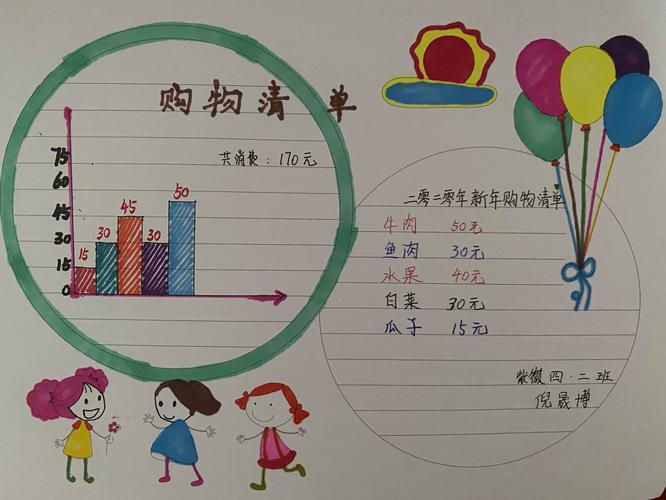 购物清单
共消费：170元
75
60
45
30
15
0
15
30
45
30
50
二零二零年新年购物清单
牛肉 50元
鱼肉 30元
水果 40元
白菜 30元
瓜子 15元
紫薇四·二班
倪晟博